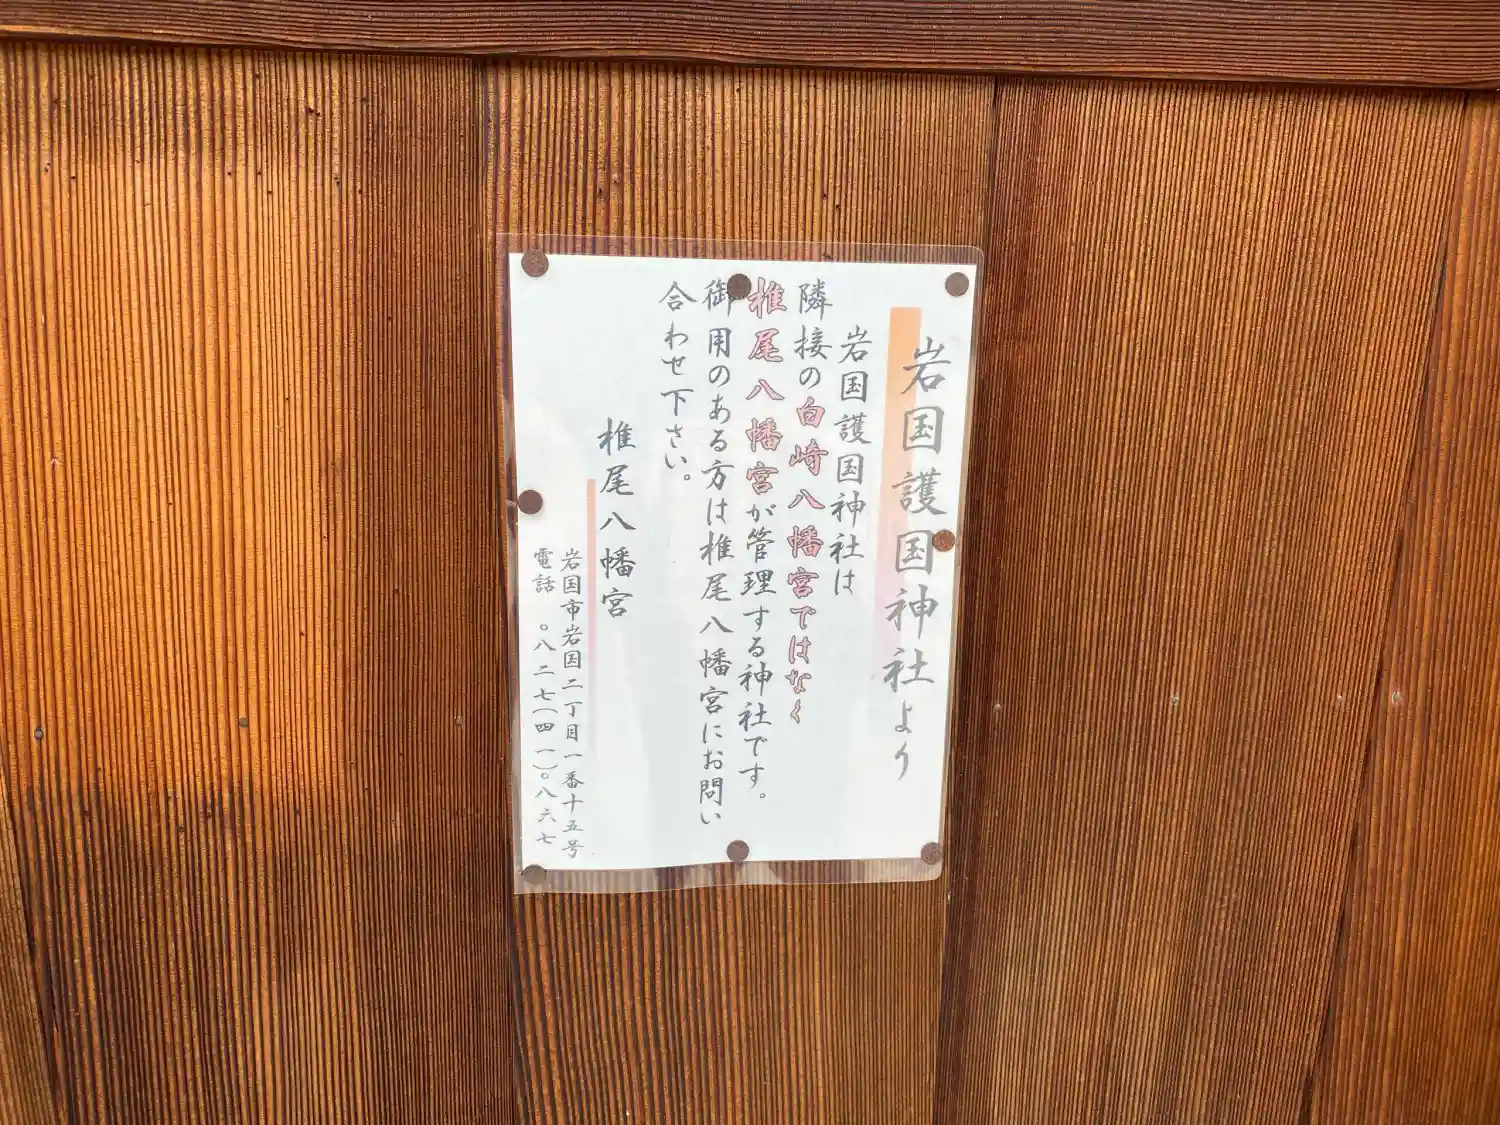 岩国護国神社より
岩国護国神社は
隣接の白崎八幡宮ではなく
椎尾八幡宮が管理する神社です。
御用のある方は椎尾八幡宮にお問い
合わせ下さい。
椎尾八幡宮
岩国市岩国二丁目一番十五号
電話 ○八二七(四一)○八六七